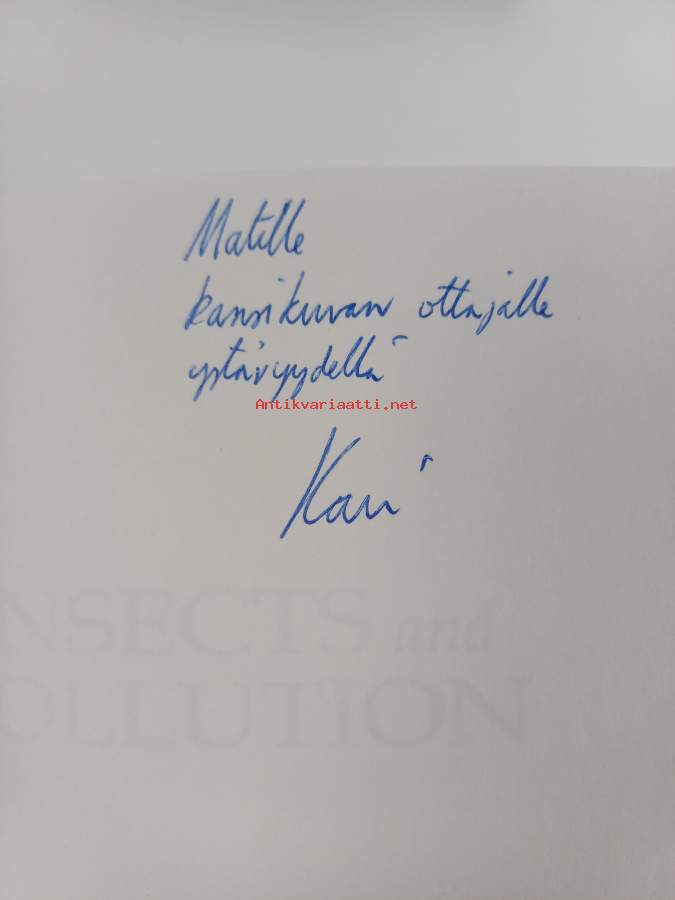 Matille
kansikuvan ottajalle
ystävyydellä
Antikvariaatti.net
Kari
NSECTS and
OLLUTION